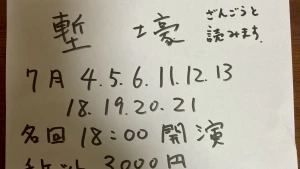 塹壕
ざんごうと
読みます.
7月 4.5.6.11.12.13
18.19.20.21
各回 18:00 開演
チケット 3000円